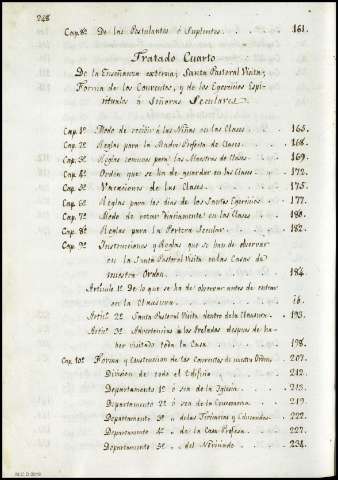 248
Cap. 8º De las Postulantes ó Suplentes . . . 161.
Tratado Cuarto
De la Enseñanza externa; Santa Pastoral Visita;
Forma de los Conventos, y de los Egercicios Espi-
rituales á Señoras Seculares.
Cap. 1º Modo de recibir á las Niñas en las Clases . 165.
Cap. 2º Reglas para la Madre Prefecta de Clases . . 168.
Cap. 3º Reglas comunes para las Maestras de Clases . 169.
Cap. 4º Orden que se ha de guardar en las Clases . . 172.
Cap. 5º Vacaciones de las Clases . . . 175.
Cap. 6º Reglas para los dias de los Santos Egercicios . . 177.
Cap. 7º Modo de rezar diariamente en las Clases . . 180.
Cap. 8º Reglas para la Portera Secular . . . 182.
Cap. 9º Instrucciones y Reglas que se han de observar
en la Santa Pastoral Visita en las Casas de
nuestra Orden . . . 184.
Articulo 1º De lo que se ha de observar antes de entrar
en la Clausura . . . ib.
Articº 2º Santa Pastoral Visita dentro de la Clausura . . 193.
Articº 3º Advertencias á los Prelados despues de ha-
ber visitado toda la Casa . . . 198.
Cap. 10º Forma y Construccion de los Conventos de nuestra Orden . 207.
Division de todo el Edificio . . . 212.
Departamento 1º ó sea de la Iglesia . . 213.
Departamento 2º ó sea de la Enseñanza . . 219.
Departamento 3º " de las Terciarias y Educandas . 222.
Departamento 4º " de la Casa Profesa . . 227.
Departamento 5º " del Noviciado . . 234.